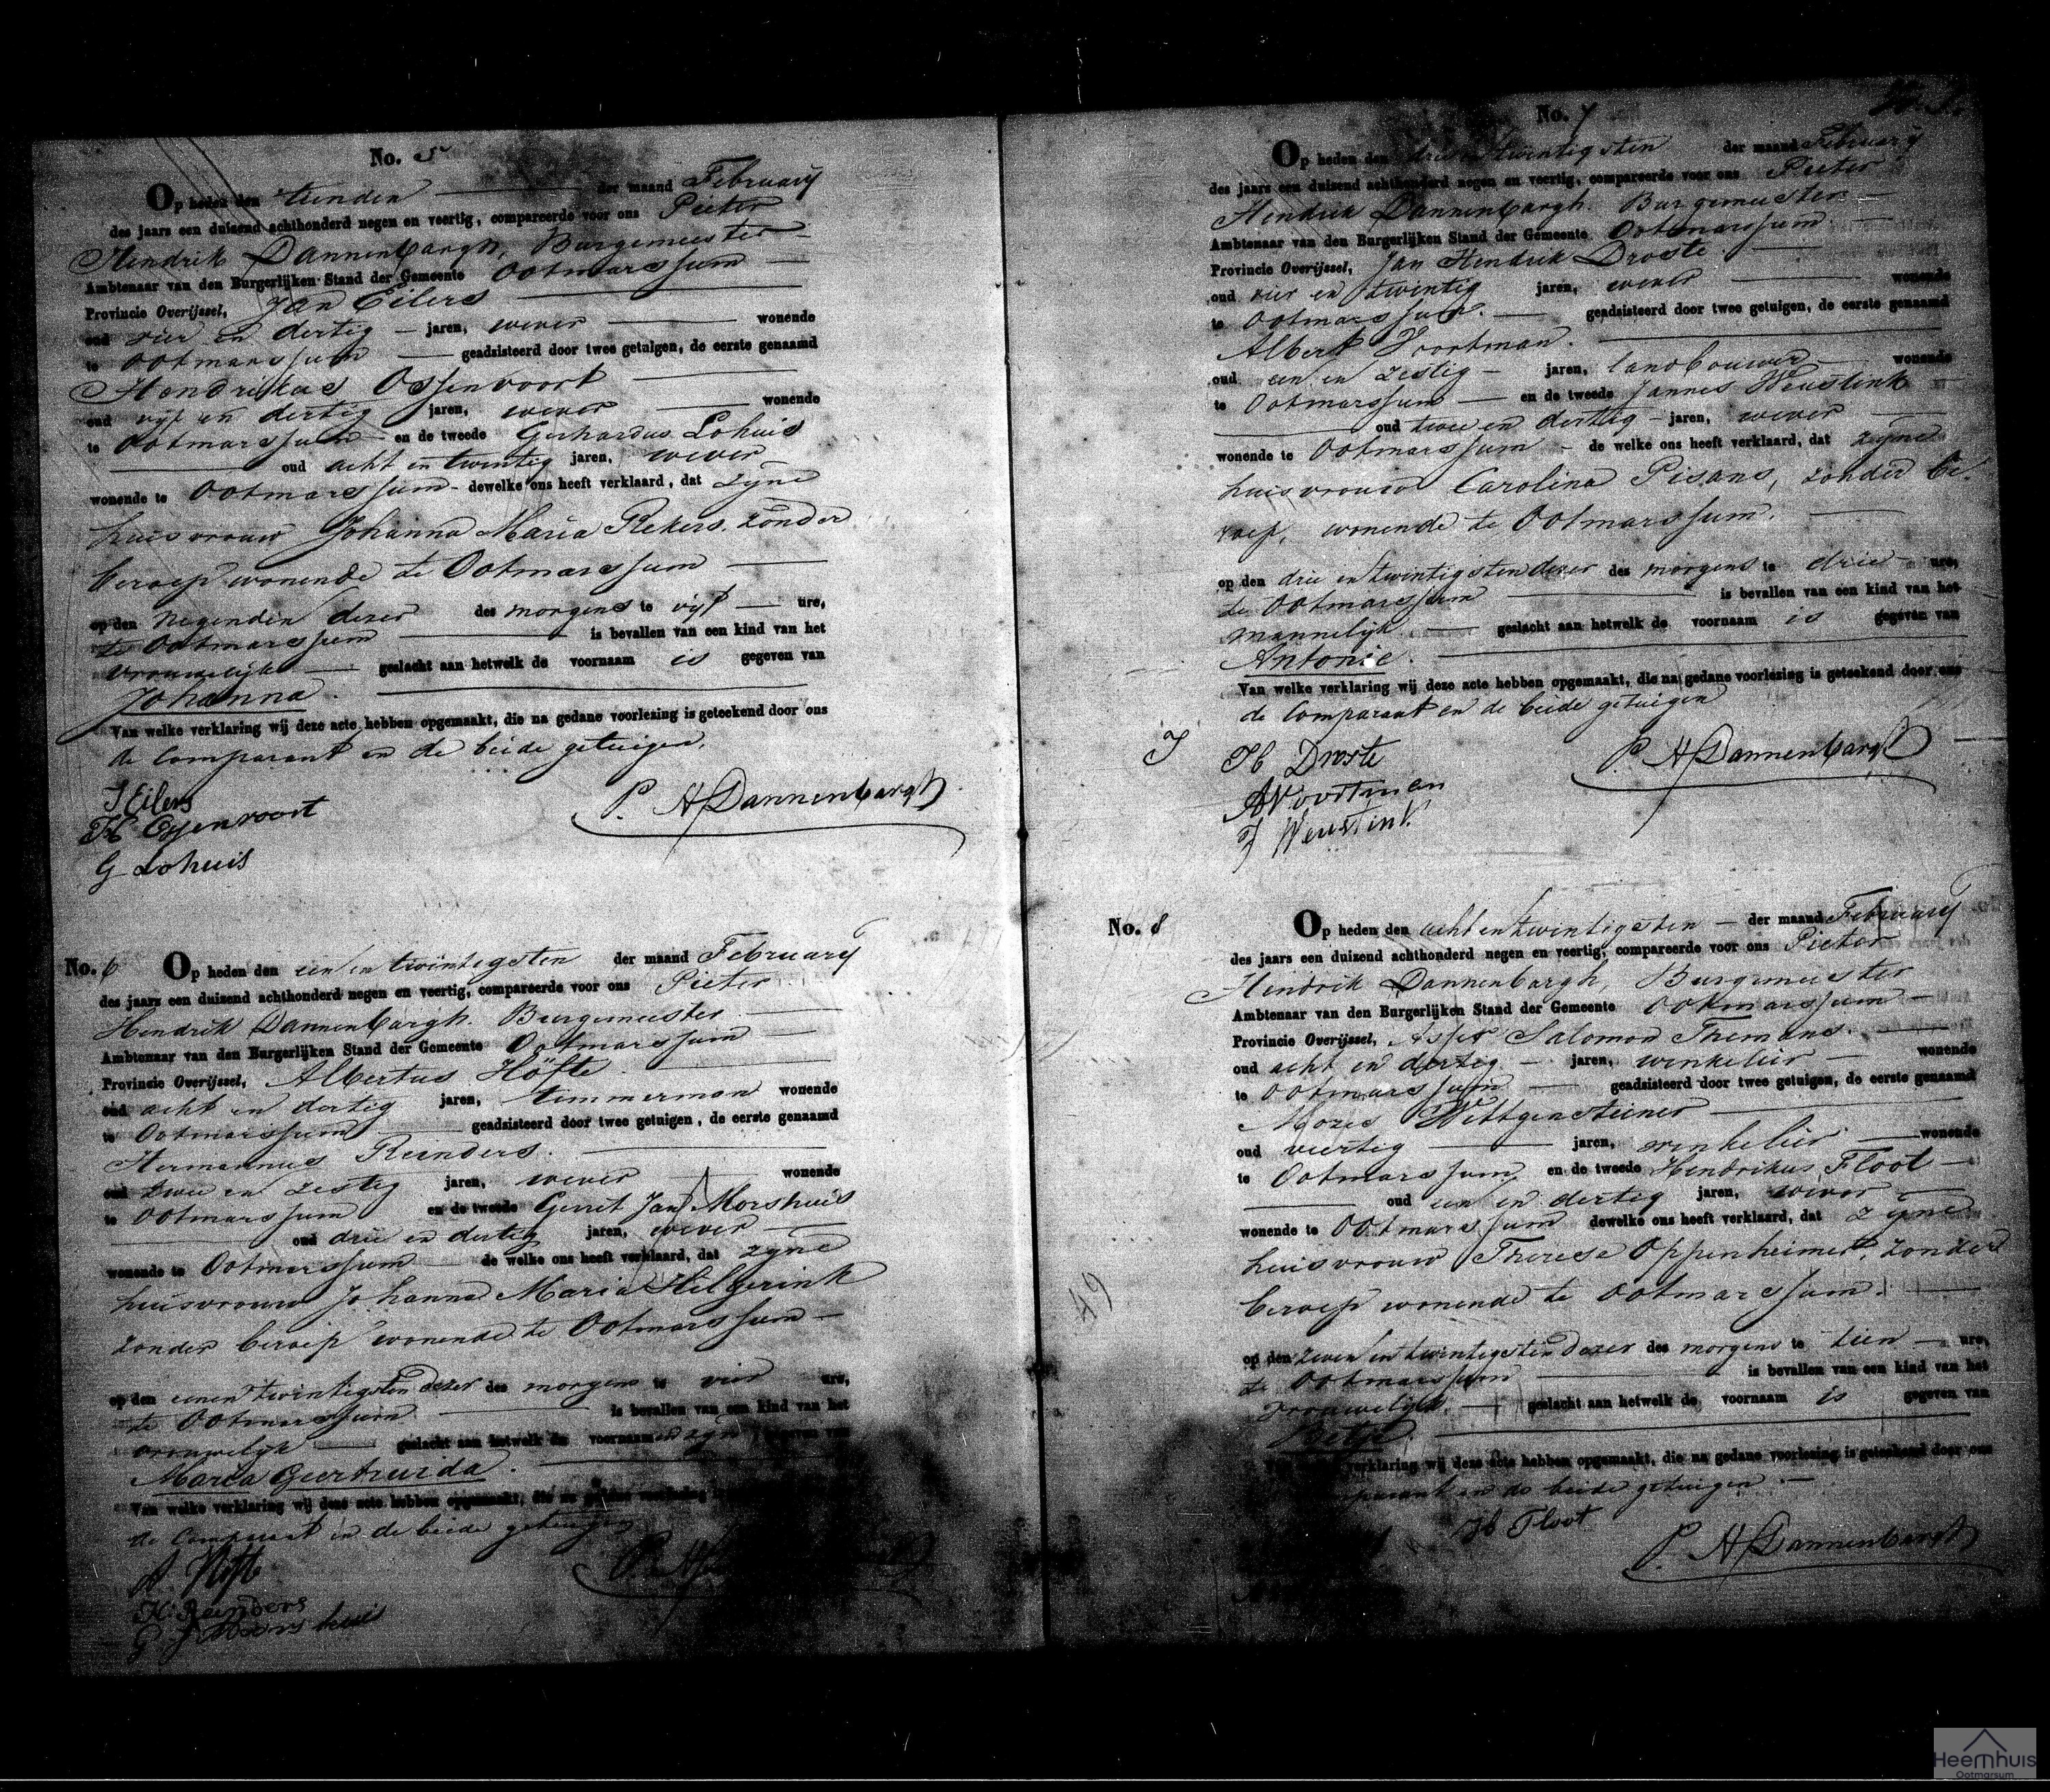 No. 5
Op heden den tienden der maand February
des jaars een duizend achthonderd negen en veertig, compareerde voor ons Pieter
Hendrik Dannenbargh, Burgemeester
Ambtenaar van den Burgerlijken Stand der Gemeente Ootmarssum
Provincie Overijssel, Jan Eilers
oud vier en dertig jaren, wever wonende
te Ootmarssum geadsisteerd door twee getuigen, de eerste genaamd
Hendrikus Ossenvoort
oud vijf en dertig jaren, wever wonende
te Ootmarssum en de tweede Gerhardus Lohuis
oud acht en twintig jaren, wever
wonende te Ootmarssum dewelke ons heeft verklaard, dat zyne
huisvrouw Johanna Maria Rekers, zonder
beroep wonende te Ootmarssum
op den negenden dezer des morgens te vijf ure,
te Ootmarssum is bevallen van een kind van het
vrouwelijk geslacht aan hetwelk de voornaam is gegeven van
Johanna.
Van welke verklaring wij deze acte hebben opgemaakt, die na gedane voorlezing is geteekend door ons
de Comparant en de beide getuigen.
J Eilers
H Ossenvoort
G Lohuis
P. H Dannenbargh
No. 6
Op heden den een en twintigsten der maand February
des jaars een duizend achthonderd negen en veertig, compareerde voor ons Pieter
Hendrik Dannenbargh. Burgemeester
Ambtenaar van den Burgerlijken Stand der Gemeente Ootmarssum
Provincie Overijssel, Albertus Höfte.
oud acht en dertig jaren, timmerman wonende
te Ootmarssum geadsisteerd door twee getuigen, de eerste genaamd
Hermannus Reinders.
oud twee en zestig jaren, wever wonende
te Ootmarssum en de tweede Gerrit Jan Morshuis
oud drie en dertig jaren, wever
wonende te Ootmarssum de welke ons heeft verklaard, dat zyne
huisvrouw Johanna Maria Hilgerink
zonder beroep wonende te Ootmarssum
op den eenen twintigsten dezer des morgens te vier ure,
te Ootmarssum is bevallen van een kind van het
vrouwelijk geslacht aan hetwelk de voornaam en zyn gegeven van
Maria Geertruida.
Van welke verklaring wij deze acte hebben opgemaakt, die na gedane voorlezing
de Comparant en de beide getuigen
A. Höfte
H. Reinders
G J Morshuis
P. H
No. 7
Op heden den drie en twintigsten der maand February
des jaars een duizend achthonderd negen en veertig, compareerde voor ons Pieter
Hendrik Dannenbargh. Burgemeester
Ambtenaar van den Burgerlijken Stand der Gemeente Ootmarssum
Provincie Overijssel, Jan Hendrik Droste.
oud vier en twintig jaren, wever wonende
te Ootmarssum. geadsisteerd door twee getuigen, de eerste genaamd
Albert Voortman.
oud een en zestig jaren, landbouwer wonende
te Ootmarssum en de tweede Jannes Weustink
oud twee en dertig jaren, wever
wonende te Ootmarssum de welke ons heeft verklaard, dat zyne
huisvrouw Carolina Pisans, zonder be-
roep, wonende te Ootmarssum.
op den drie en twintigsten dezer des morgens te drie ure,
te Ootmarssum is bevallen van een kind van het
mannelijk geslacht aan hetwelk de voornaam is gegeven van
Antonie.
Van welke verklaring wij deze acte hebben opgemaakt, die na gedane voorlezing is geteekend door ons
de Comparant en de beide getuigen
J H Droste
A Voortman
J Weustink
P. H Dannenbargh
No. 8
Op heden den acht en twintigsten der maand February
des jaars een duizend achthonderd negen en veertig, compareerde voor ons Pieter
Hendrik Dannenbargh, Burgemeester
Ambtenaar van den Burgerlijken Stand der Gemeente Ootmarssum
Provincie Overijssel, Asser Salomon Themans.
oud acht en dertig jaren, winkelier wonende
te Ootmarssum geadsisteerd door twee getuigen, de eerste genaamd
Mozes Wittgensteiner
oud veertig jaren, winkelier wonende
te Ootmarssum en de tweede Hendrikus Floot
oud een en dertig jaren, wever
wonende te Ootmarssum dewelke ons heeft verklaard, dat zyne
huisvrouw Therese Oppenheimer, zonder
beroep wonende te Ootmarssum.
op den zeven en twintigsten dezer des morgens te tien ure,
te Ootmarssum is bevallen van een kind van het
vrouwelijk geslacht aan hetwelk de voornaam is gegeven van
Betje
verklaring wij deze acte hebben opgemaakt, die na gedane voorlezing is geteekend door ons
en de beide getuigen
H Floot
P. H Dannenbargh
49
Heemhuis
Ootmarsum